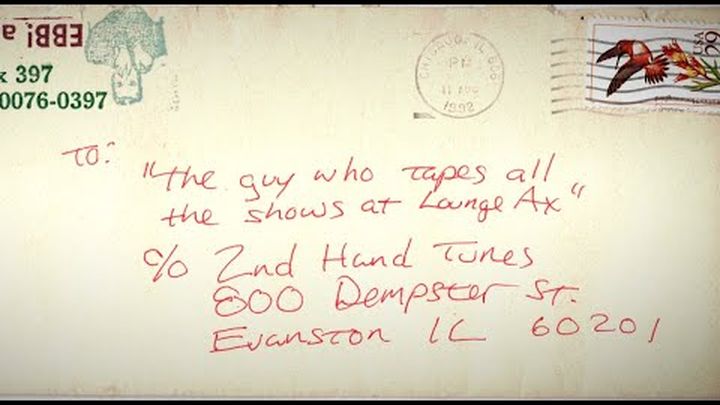 EBB! a
x 397
0076-0397
CHICAGO, IL 606
PM
11 AUG
1992
USA
29
TO:
"the guy who tapes all
the shows at Lounge Ax"
c/o 2nd Hand Tunes
800 Dempster St.
Evanston IL 60201